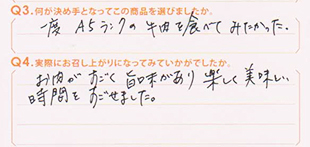 Q3.何が決め手となってこの商品を選びましたか。
一度 A5ランクの牛肉を食べてみたかった.
Q4.実際にお召し上がりになってみていかがでしたか。
お肉がすごく旨味があり楽しく美味しい
時間をすごせました。